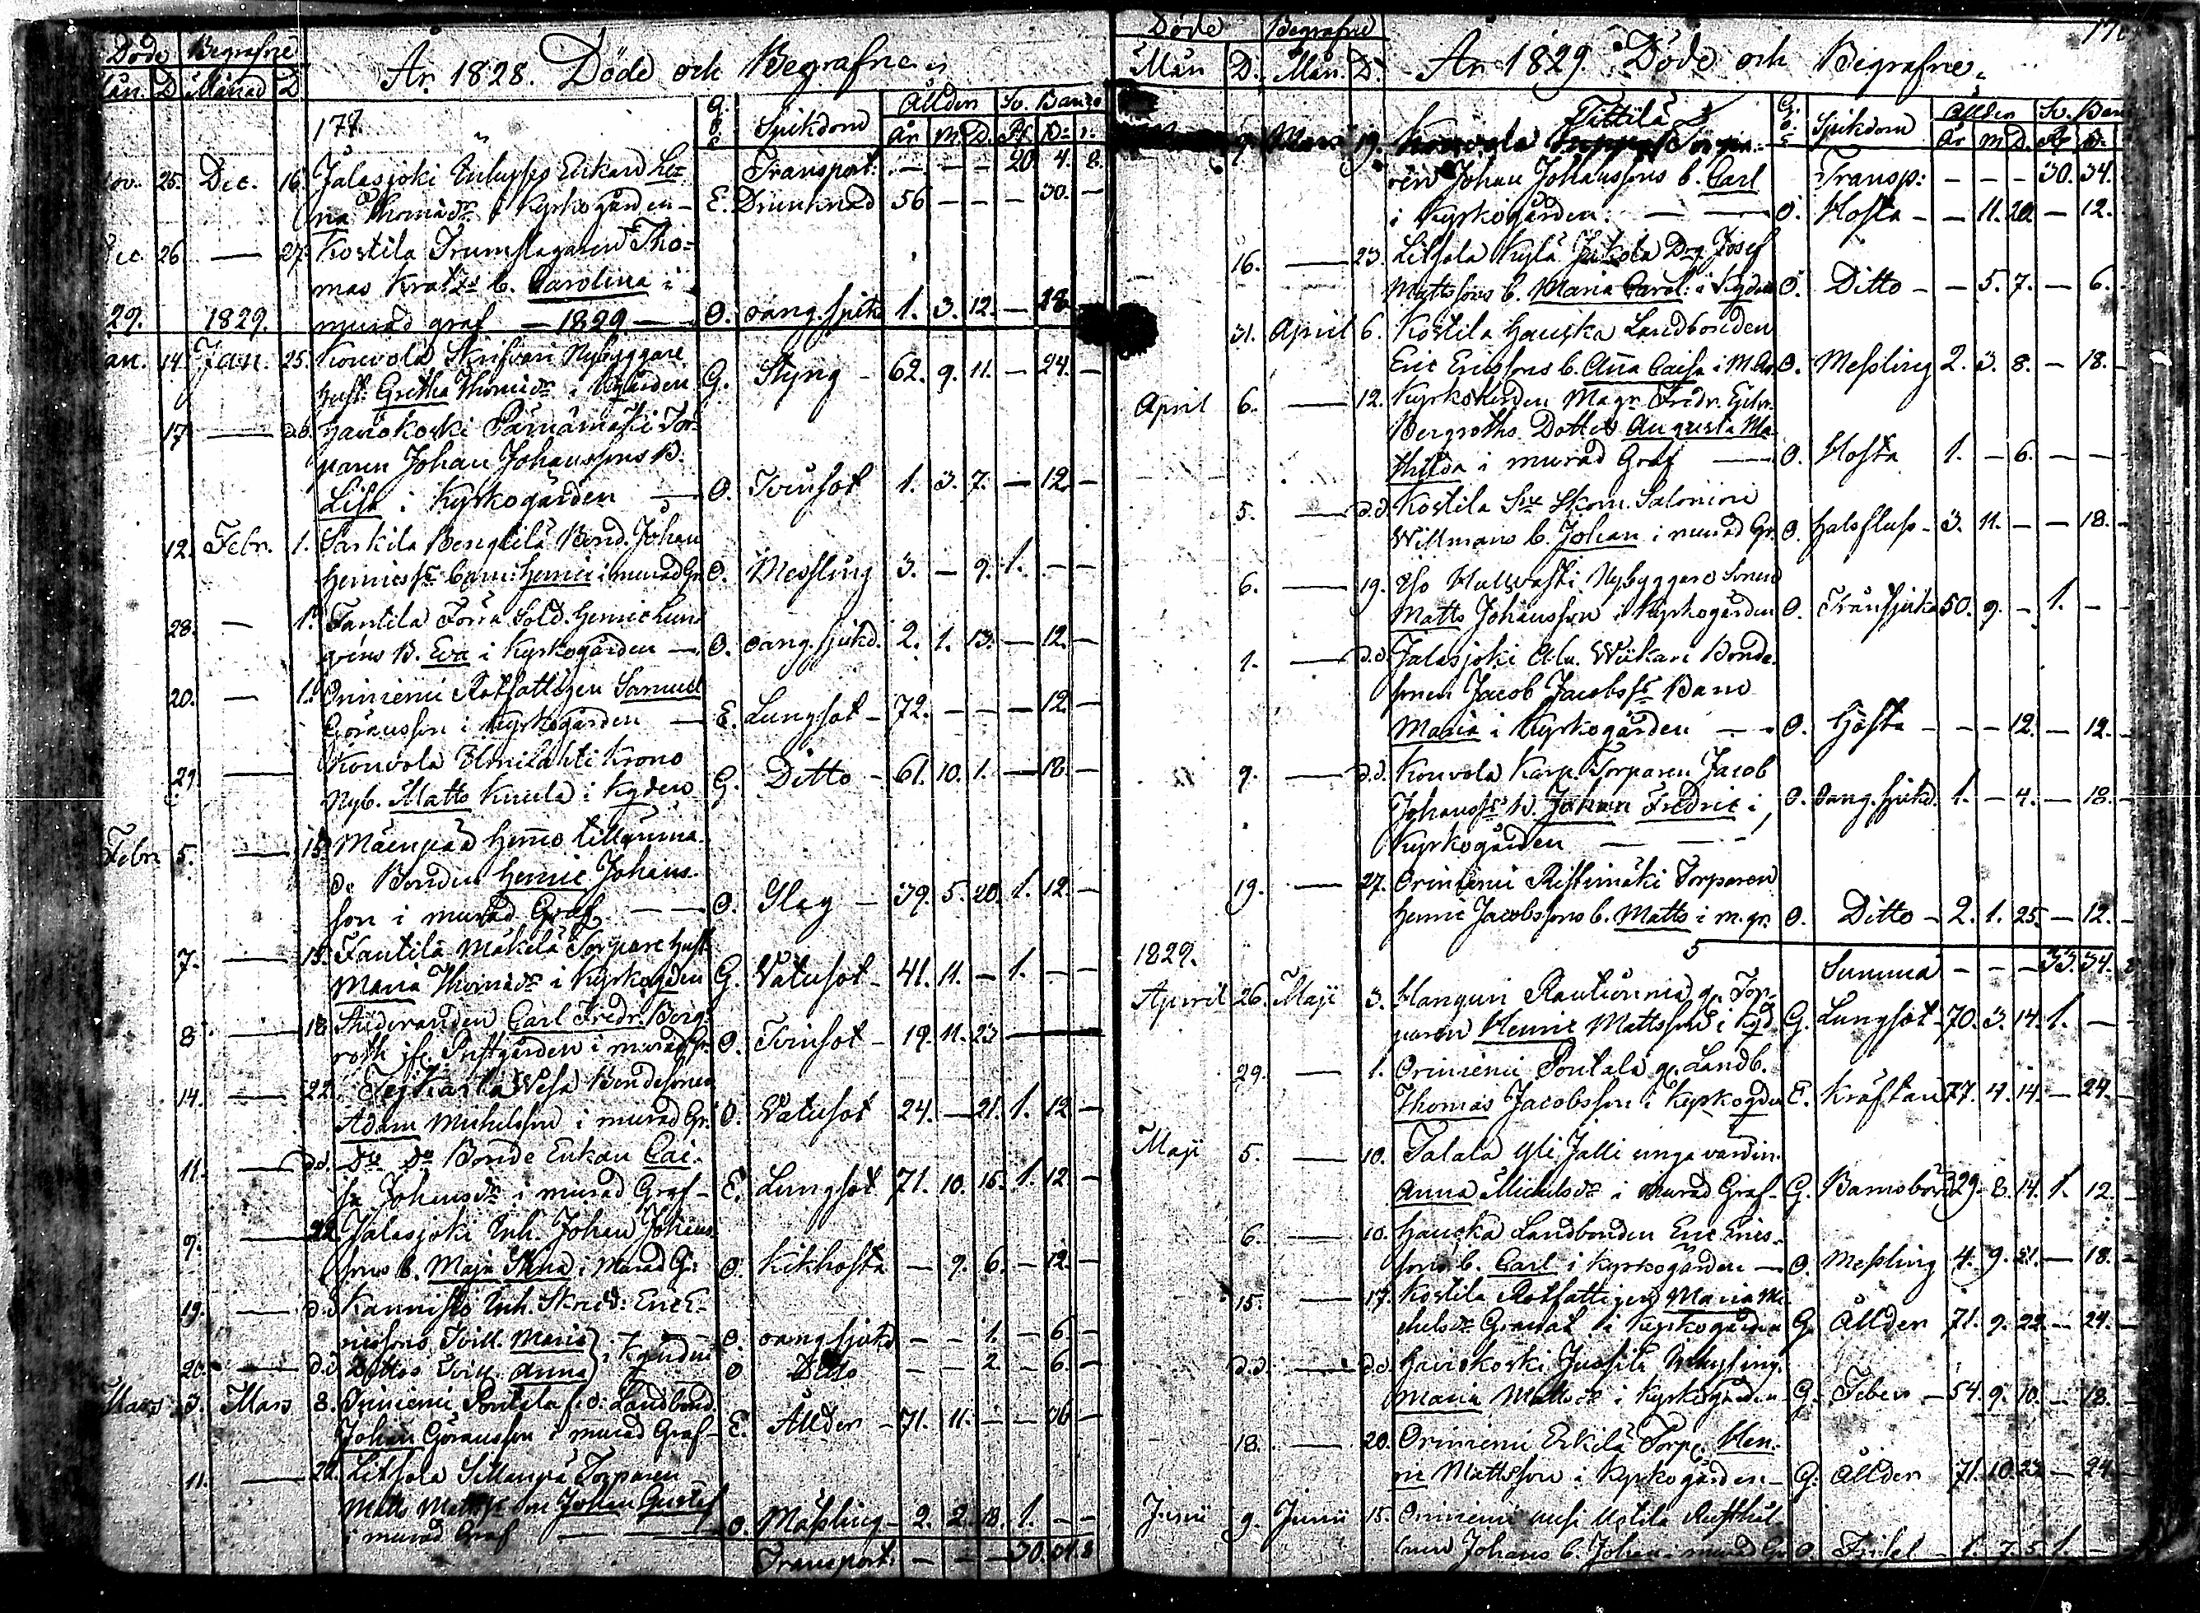 Döde Begrafne
Mån. D. Månad D.
År 1828. Döde och Begrafne
177.
G. O. E. Sjukdom Ållder Sv. Banco
År M. D. R. D. r.
Transport: — — — 20 4. 8.
Nov. 25. Dec. 16. Jalasjoki Enkan Le-
na Thomædr i Kyrkogården — E. Drunknad 56 — — — 30. —
Dec. 26 — 27. Kostila Trumslagaren Tho-
mas Kratz b. Carolina i
murad graf — 1829 — O. oang. sjuk 1. 3. 12. — 18.
29. 1829.
Jan. 14. Jan. 25. Kouvola Skrifvari Nybyggare
hust. Gretha Thomædr i Kgården G. Styng — 62. 9. 11. — 24. —
17 — d.d. Haviokoski Pärnämäki Tor-
paren Johan Johanssons B.
Lisa i Kyrkogården — O. Tvinsot 1. 3. 7. — 12. —
12. Febr. 1. Sarkila Bengtilä Bond. Johan
Henricss. barn: Henric i murad Gr. O. Messling 3. — 9. 1. — —
28. — 1. Tantila Sold. Henric Lund
gréns B. Eva i Kyrkogården — O. oang. sjukd. 2. 1. 13. — 12. —
20. — 1. Oriniemi Rotfattigen Samuel
Göransson i Kyrkogården — E. Lungsot — 72. — — — 12. —
29 — Kouvola Elmilahti Krono
Nyb. Matts Kuula i Kgden G. Ditto — 61. 10. 1. — 18. —
Febr. 5. — 15. Mäenpää Hemmo tillämna-
de Bonden Henric Johans-
son i murad Graf. — O. Slag — 39. 5. 20. 1. 12. —
7. — 15. Tantila Mäkelä Torpare hust.
Maria Thomædr i Kyrkogden G. Vatusot — 41. 11. — 1. — —
8 — 18. Studeranden Carl Fredr. Berg-
roth fr. Prestgården i murad Gr. O. Tvinsot — 19. 11. 23 —
14. — 22. Tejkarla Wesa Bondesonen
Adam Michelsson i murad Gr. O. Vatusot 24. — 21. 1. 12 —
11. — d.d. Do Do Bonde Enkan Cai-
sa Johansdr i murad Graf — E. Lungsot 71. 10. 15. 1. 12 —
9. — 22. Jalasjoki Inh. Johan Johans
sons b. Maja Stina i murad Gr. O. Kikhosta — 9. 6. — 12. —
19. — d.d. Kannisto Inh. Skräd: Eric E-
ricssons Tvill. Maria O. oang. sjukd — — 1. — 6. —
20. — d.d. Dittos Tvill. Anna i Kgården O Ditto — — 2. — 6. —
Mars 3. Mars 8. Oriniemi Pontala f.d. Landbond.
Johan Göransson i murad Graf — E. Ållder — 71. 11. — — 36 —
11. — 22. Litsola Sillanpä Torparen
Matts Mattss. son Johan Gustaf
i murad Graf — O. Mässling — 2. 2. 18. 1. — —
Transport. — — — 30. 34. 8
Döde Begrafne
Mån D. Mån. D.
År 1829. Döde och Begrafne.
G. O. E. Sjukdom Ållder Sv. Ban
År M. D. R. D.
Transp: — — — 30. 34.
Tittilä
9. Mars 19. Kouvola
ren Johan Johanssons b. Carl
i Kyrkogården. — O. Hosta — — 11. 20. — 12.
16. — 23. Litsola Kylä Jukola Drg. Josef
Mattssons b. Maria Carol: i Kgden O. Ditto — — 5. 7. — 6.
31. April 6. Kostila Hauska Landbonden
Eric Ericssons b. Anna Caisa i M. Gr. O. Messling 2. 3. 8. — 18. —
April 6. — 12. Kyrkoherden Magr. Fredr.
Bergroths Dotter Augusta Ma-
thilda i murad Graf — O. Hosta 1. — 6. — — —
5. — d.d. Kostila Skom. Salomon
Willmans b. Johan i murad Gr. O. Halsfluss — 3. 11. — — 18. —
6. — 19. Nybyggare Sonen
Matts Johansson i Kyrkogården O. Trånsjuka 50. 9. — 1. — —
1. — d.d. Jalasjoki Ala Wiikari Bonde-
sonen Jacob Jacobss. Barn
Maria i Kyrkogården — O. Hosta — — — 12. — 12. —
9. — d.d. Kouvola Karp. Torparen Jacob
Johanss. B. Johan Fredric i O. oang. sjukd. 1. — 4. — 18. —
Kyrkogården —
19. — 27. Oriniemi Ristimäki Torparen
Henric Jacobssons b. Matts i m. gr. O. Ditto — 2. 1. 25. — 12. —
1829. 5 Summa — — — 33. 34.
April 26. Maji 3. Hanguri Rautiönmä g. Tor-
paren Henric Mattsson i Kgd. G. Lungsot — 70. 3. 14. 1. —
29. — 1. Oriniemi Pontala g. Landb.
Thomas Jacobsson i Kyrkogden E. Kräftan 77. 4. 14. — 24. —
Maji 5. — 10. Talala Yli Jalli unga värdin.
Anna Michelsdr i murad Graf — G. Barnsbörd 29. 8. 14. 1. 12
6. — 10. Hauska Landbonden Eric Erics-
sons b. Carl i Kyrkogården — O. Messling 4. 9. 21. — 18. —
15. — 17. Kostila Rotfattigen Maria Mi-
chelsdr Granat i Kyrkogården G. Ållder 71. 9. 22. — 24. —
d.d. — d.d. Haviokoski Jussila Inhysing.
Maria Mattsdr i Kyrkogården G. Feber — 54. 9. 10. — 18. —
18. — 20. Oriniemi Erkilä Torp. Hen-
ric Mattsson i Kyrkogården — G. Ållder 71. 10. 23 — 24 —
Junii 9. Junii 15. Oriniemi Uotila Rusthål-
laren Johans b. Johan i murad Gr O. Frisel — 1. 7. 5. 1. —